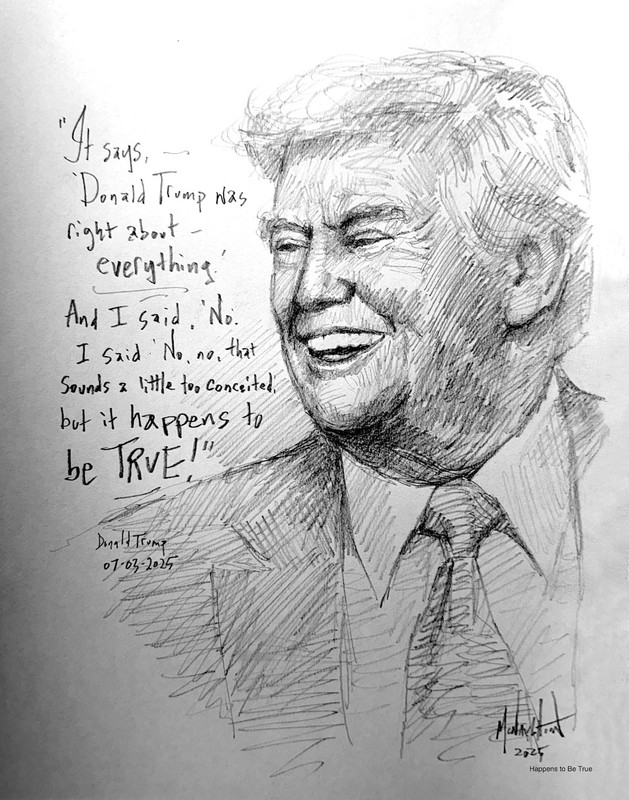 "It says, —
'Donald Trump was
right about –
everything.'
And I said, 'No.
I said 'No, no, that
sounds a little too conceited,
but it happens to
be TRUE!"
Donald Trump
07-03-2025
McNaughton
2025
Happens to Be True